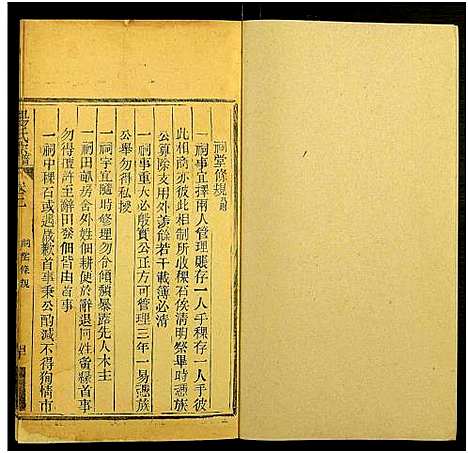 祠堂條規
一祠事宜擇兩人管理賬存一人手稞存一人手彼
此相商亦彼此相制所收稞石俟淸明祭畢時憑族
公算除支用外羨餘若干載簿必清
一祠事重大必殷實公正方可管理三年一易憑族
公舉勿得私授
一祠宇宜隨時修理勿令傾頹暴露先人木主
一祠田畝房舍外姓佃耕使於辭退同姓夤緣首事
勿得擅許至辭田發佃皆由首事
一祠中稞石或遇歲歉首事秉公酌減不得徇情市
氏宗譜
祠堂條規